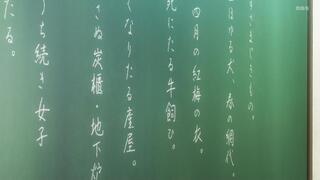 すさまじきもの。
昼ほゆる犬、春の網代。
四月の紅梅の衣。
死にたる牛飼ひ。
くなりたる産屋。
さぬ炭櫃・地下炉
うち続き女子
たる。